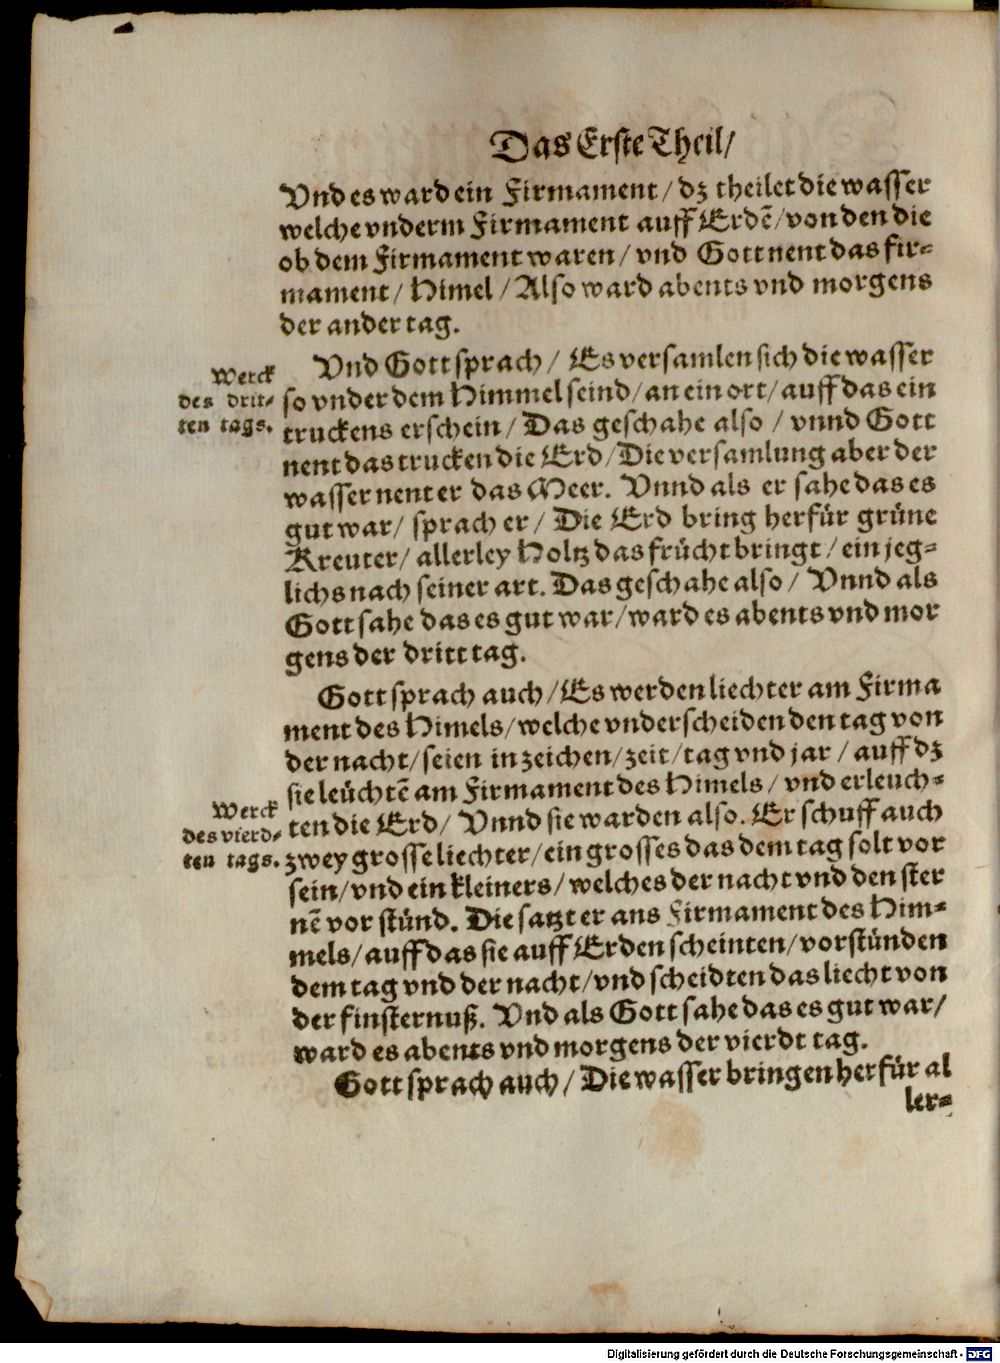 Das Erste Theil/
Vnd es ward ein Firmament/ dz theilet die wasser
welche vnderm Firmament auff Erdẽ/ von den die
ob dem Firmament waren/ vnd Gott nent das fir-
mament/ Himel/ Also ward abents vnd morgens
der ander tag.
Vnd Gott sprach/ Es versamlen sich die wasser
Werck
des drit-
ten tags.
so vnder dem Himmel seind/ an ein ort/ auff das ein
truckens erschein/ Das geschahe also/ vnnd Gott
nent das trucken die Erd/ Die versamlung aber der
wasser nent er das Meer. Vnnd als er sahe das es
gut war/ sprach er/ Die Erd bring herfür grüne
Kreuter/ allerley Holtz das frücht bringt/ ein jeg-
lichs nach seiner art. Das geschahe also/ Vnnd als
Gott sahe das es gut war/ ward es abents vnd mor
gens der dritt tag.
Gott sprach auch/ Es werden liechter am Firma
ment des Himels/ welche vnderscheiden den tag von
der nacht/ seien in zeichen/ zeit/ tag vnd jar/ auff dz
sie leüchtẽ am Firmament des Himels/ vnd erleuch-
Werck
des vierd-
ten tags.
ten die Erd/ Vnnd sie warden also. Er schuff auch
zwey grosse liechter/ ein grosses das dem tag solt vor
sein/ vnd ein kleiners/ welches der nacht vnd den ster
nẽ vor stünd. Die satzt er ans Firmament des Him-
mels/ auff das sie auff Erden scheinten/ vorstünden
dem tag vnd der nacht/ vnd scheidten das liecht von
der finsternuß. Vnd als Gott sahe das es gut war/
ward es abents vnd morgens der vierdt tag.
Gott sprach auch/ Die wasser bringen herfür al
ler-
Digitalisierung gefördert durch die Deutsche Forschungsgemeinschaft - DFG